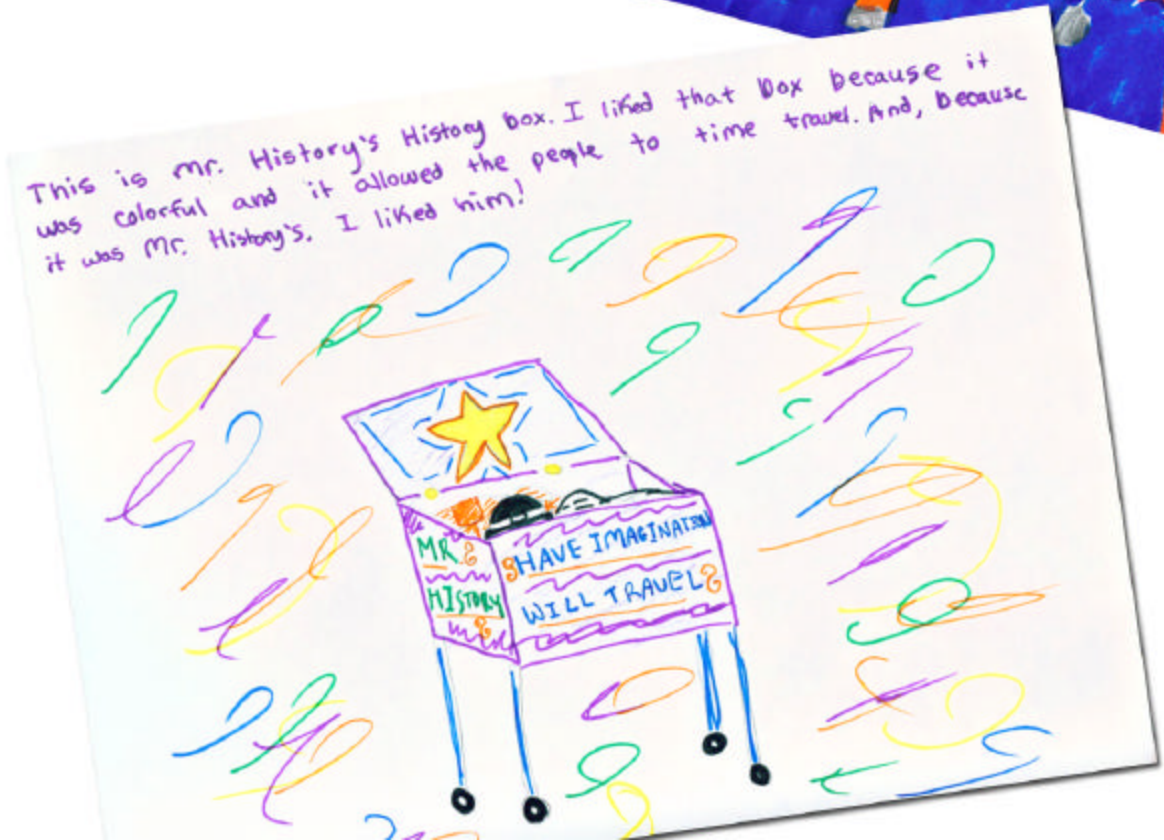 This is mr. History's History box. I liked that box because it
was colorful and it allowed the people to time travel. And, because
it was Mr. History's. I liked him!
MR.
HISTORY
HAVE IMAGINATION
WILL TRAVEL